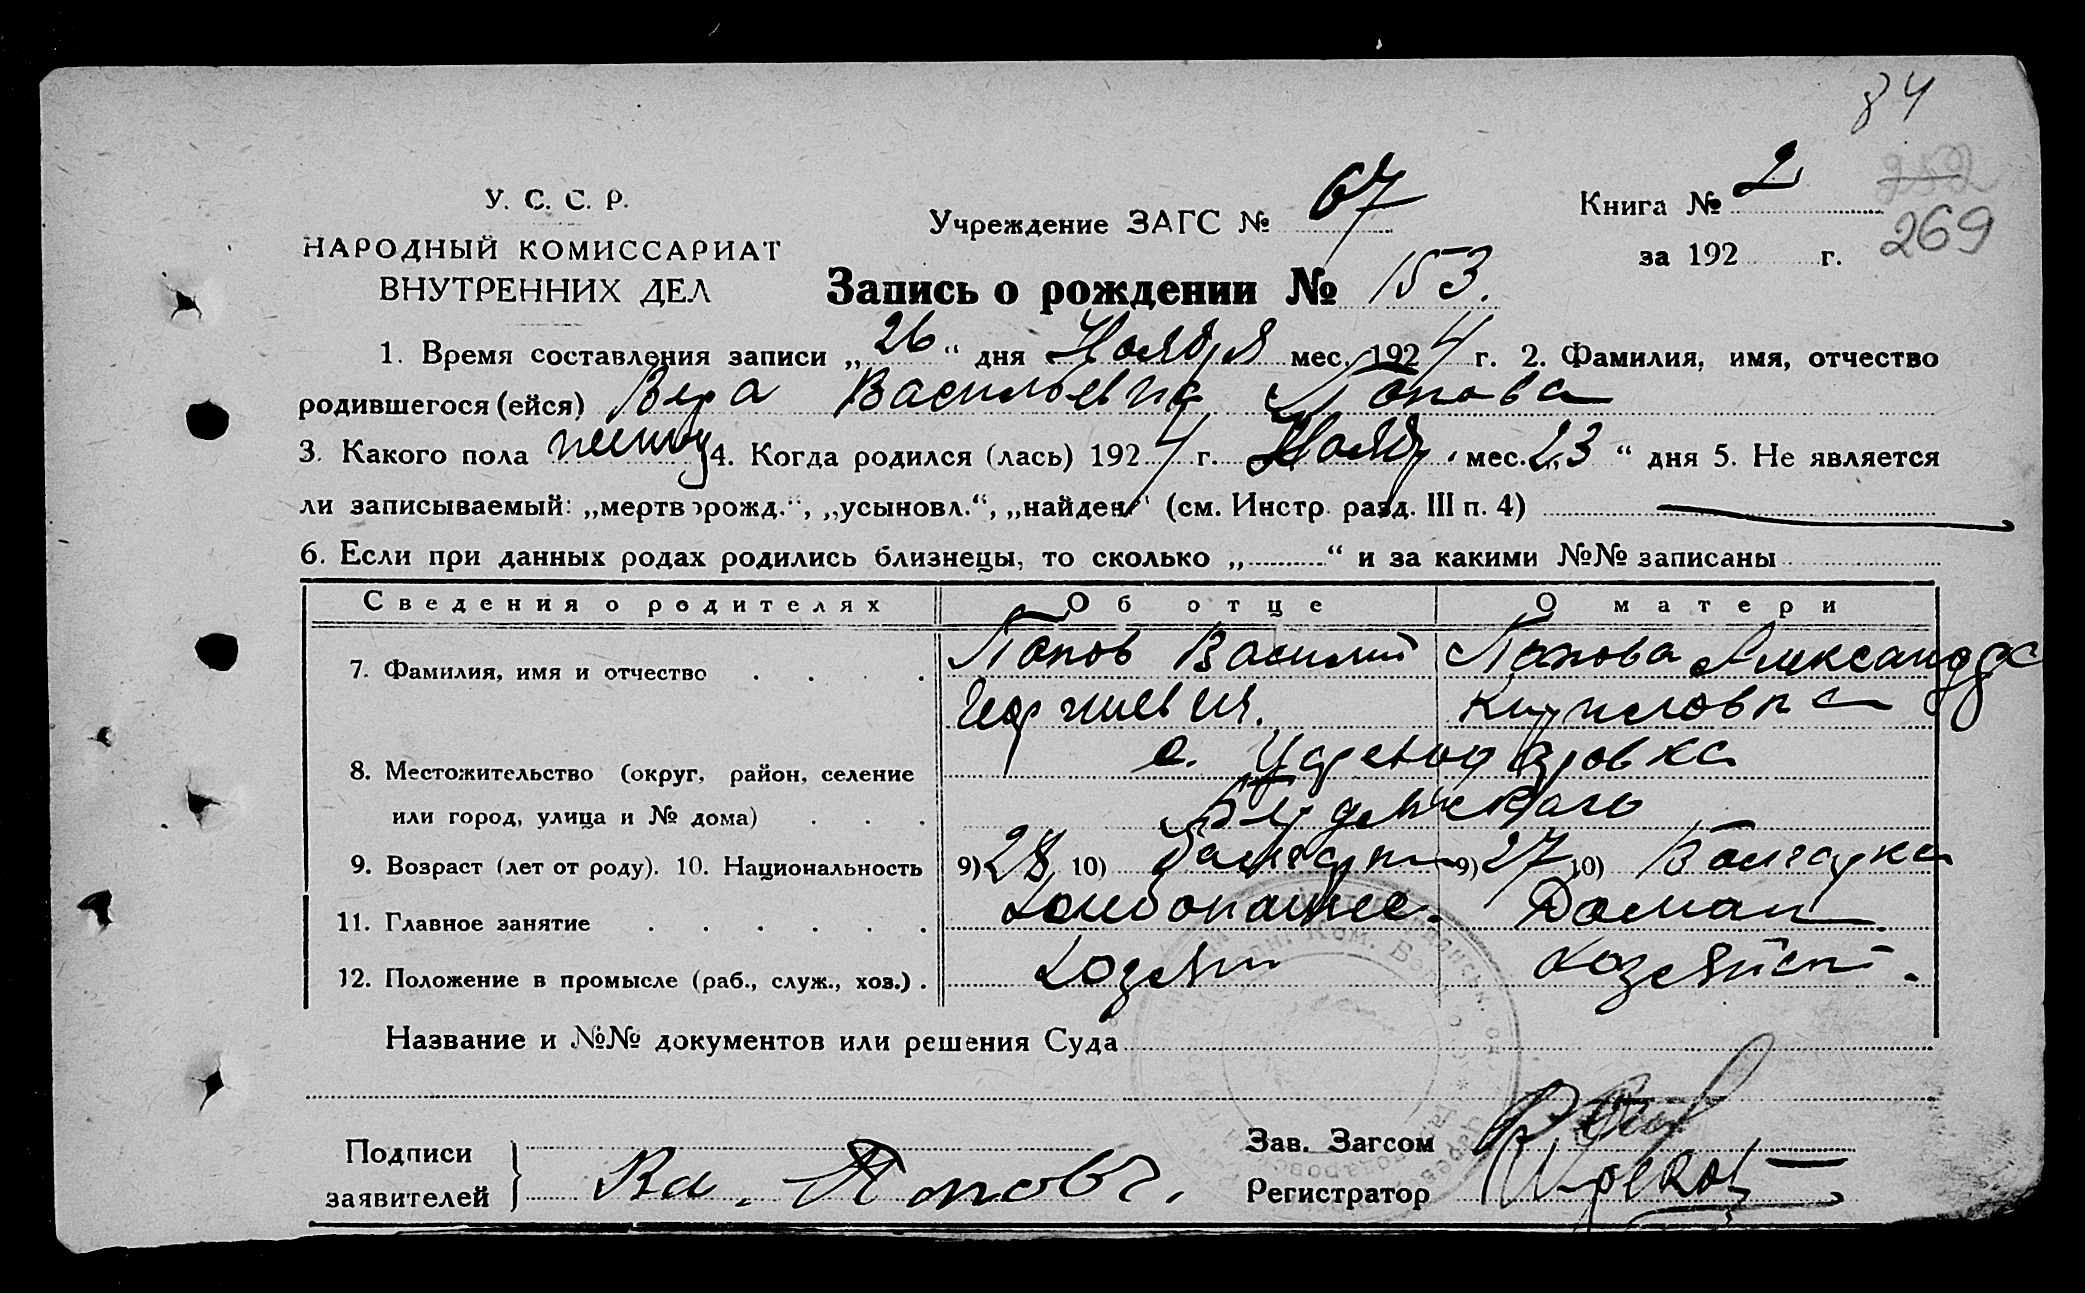 84
У. С. С. Р.
НАРОДНЫЙ КОМИССАРИАТ
ВНУТРЕННИХ ДЕЛ
Учреждение ЗАГС № 67
Книга № 2
252
за 192 г.
269
Запись о рождении № 153.
1. Время составления записи „26“ дня Ноября мес. 1924 г. 2. Фамилия, имя, отчество
родившегося (ейся) Вера Васильевна Попова
3. Какого пола 4. Когда родился (лась) 1924 г. Ноябр. мес. „23“ дня 5. Не является
ли записываемый: „мертворожд.“, „усыновл.“, „найден“ (см. Инстр. разд. III п. 4)
6. Если при данных родах родились близнецы, то сколько „ “ и за какими №№ записаны
Сведения о родителях Об отце О матери
7. Фамилия, имя и отчество Попов Василий Попова Александра
Георгиевич. Кирилловна
8. Местожительство (округ, район, селение с. Цареводаровка
или город, улица и № дома)
9. Возраст (лет от роду). 10. Национальность 9) 28 10) болгарин 9) 27 10) Болгарка
11. Главное занятие Хлебопашес. Домашн.
12. Положение в промысле (раб., служ., хоз.) Хозяин хозяйств.
Название и №№ документов или решения Суда
Подписи
заявителей Ва. Попов
Зав. Загсом
Регистратор